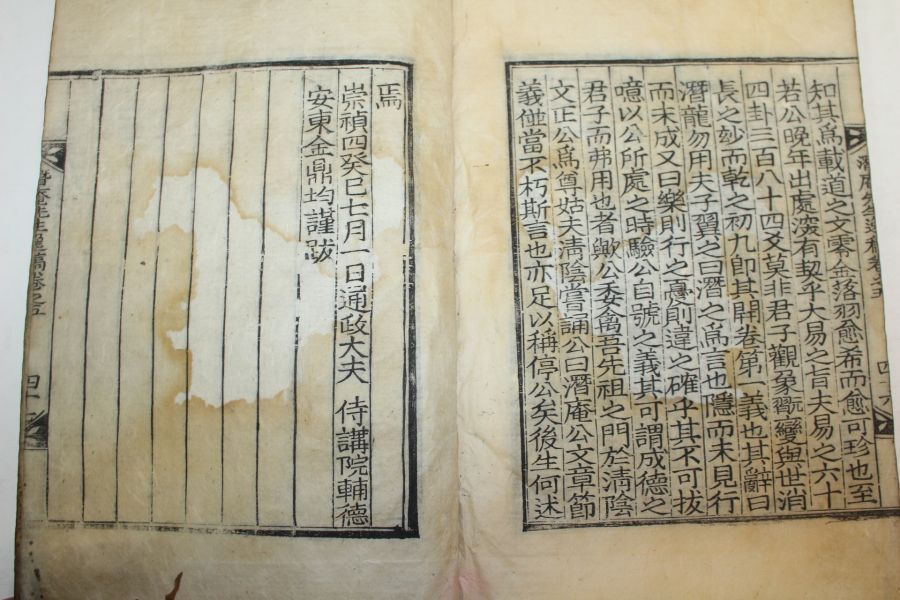 知其爲載道之文零金落羽愈希而愈可珍也至
若公晚年出處深有契乎大易之旨夫易之六十
四卦三百八十四爻莫非君子觀象翫變與世消
長之妙而乾之初九卽其開卷第一義也其辭曰
潛龍勿用夫子翼之曰潛之爲言也隱而未見行
而未成又曰樂則行之憂則違之確乎其不可拔
噫以公所處之時驗公自號之義其可謂成德之
君子而弗用也者歟公委禽吾先祖之門於淸陰
文正公爲尊姑夫淸陰嘗誦公曰潛庵公文章節
義倂當不朽斯言也亦足以稱停公矣後生何述
焉
崇禎四癸巳七月一日通政大夫 侍講院輔德
安東金鼎均謹跋